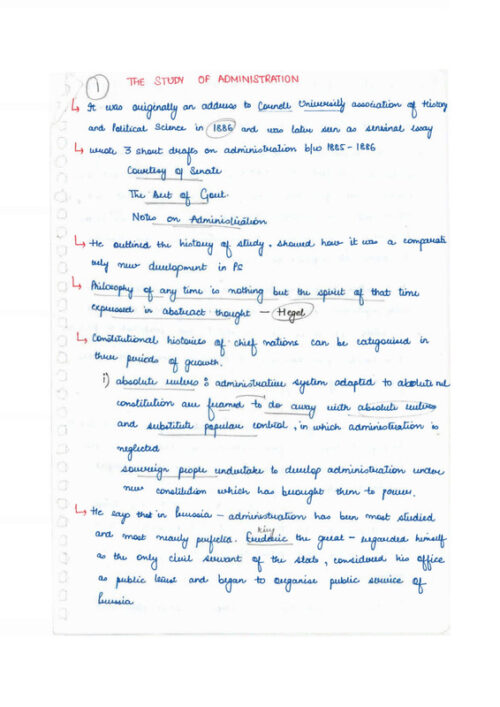 1
THE STUDY OF ADMINISTRATION
↳ It was originally an address to Cornell University association of History
and Political Science in 1886 and was later seen as seminal essay
↳ wrote 3 short drafts on administration b/w 1885-1886
Courtesy of Senate
The Art of Govt.
Notes on Administration
↳ He outlined the history of study. showed how it was a comparati
vely new development in PS
↳ Philosophy of any time is nothing but the spirit of that time
expressed in abstract thought - Hegel
↳ Constitutional histories of chief nations can be categorised in
three periods of growth.
i) absolute rulers : administrative system adapted to absolute rul
constitution are framed to do away with absolute rulers
and substitute popular control, in which administration is
neglected
sovereign people undertake to develop administration under
new constitution which has brought them to power.
↳ He says that in Prussia - administration has been most studied
and most nearly perfected. king Frederic the great - regarded himself
as the only civil servant of the state, considered his office
as public trust and began to organise public service of
Prussia